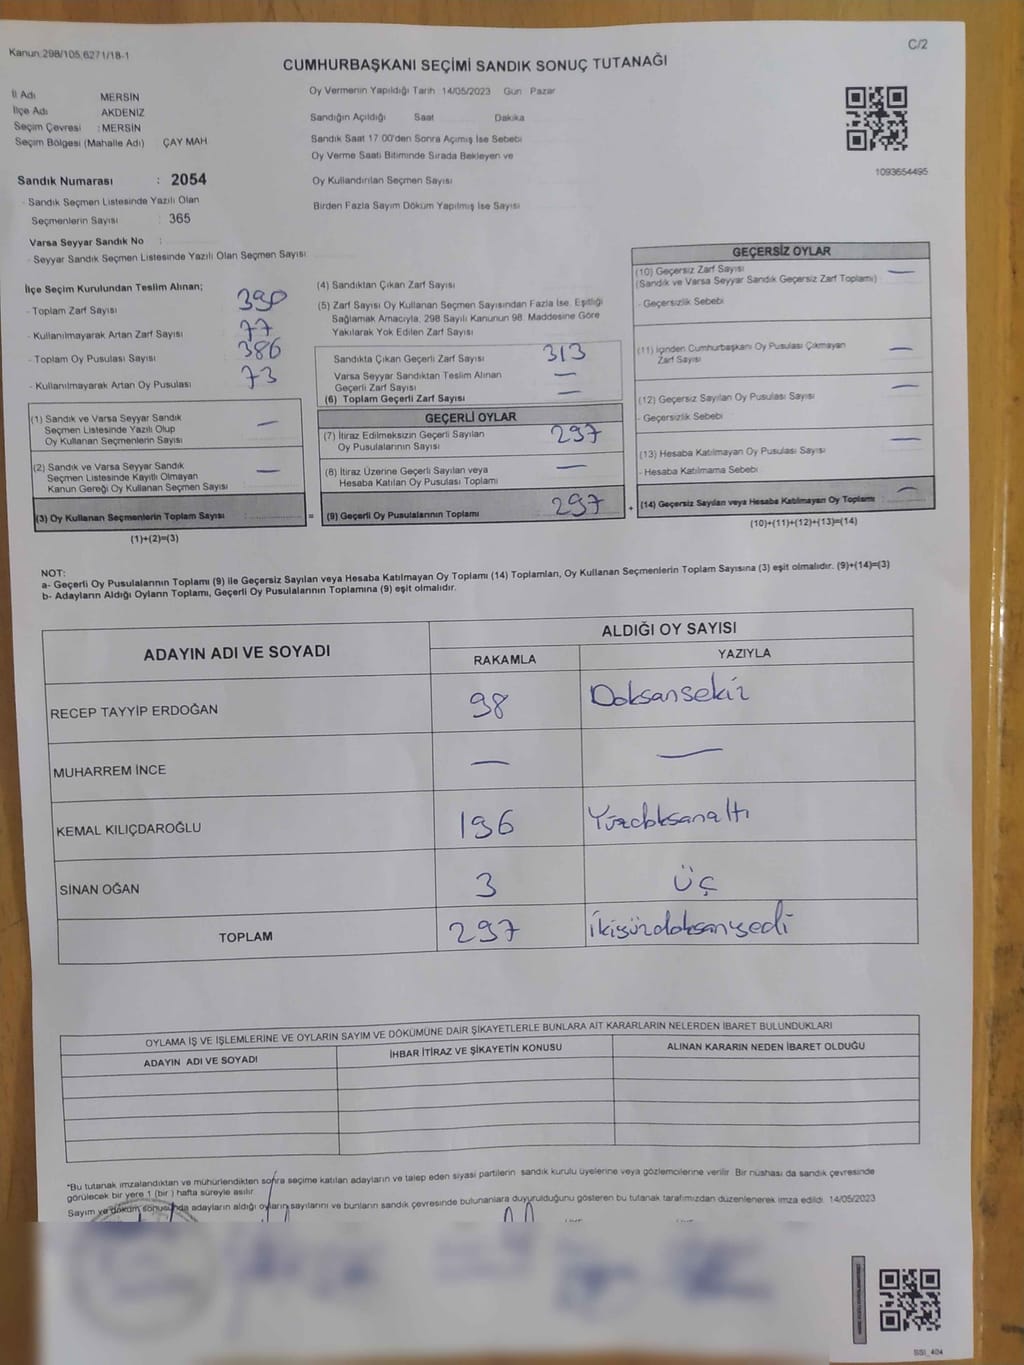 Kanun:298/105;6271/18-1
C/2
CUMHURBAŞKANI SEÇİMİ SANDIK SONUÇ TUTANAĞI
İl Adı MERSİN
İlçe Adı AKDENİZ
Seçim Çevresi : MERSİN
Seçim Bölgesi (Mahalle Adı) ÇAY MAH
Sandık Numarası : 2054
- Sandık Seçmen Listesinde Yazılı Olan
Seçmenlerin Sayısı : 365
Varsa Seyyar Sandık No :
- Seyyar Sandık Seçmen Listesinde Yazılı Olan Seçmen Sayısı:
Oy Vermenin Yapıldığı Tarih 14/05/2023 Gün Pazar
Sandığın Açıldığı Saat Dakika
Sandık Saat 17:00'den Sonra Açımış İse Sebebi
Oy Verme Saati Bitiminde Sırada Bekleyen ve
Oy Kullandırılan Seçmen Sayısı
Birden Fazla Sayım Döküm Yapılmış İse Sayısı
1093654495
İlçe Seçim Kurulundan Teslim Alınan;
- Toplam Zarf Sayısı 390
- Kullanılmayarak Artan Zarf Sayısı 77
- Toplam Oy Pusulası Sayısı 386
- Kullanılmayarak Artan Oy Pusulası 73
(1) Sandık ve Varsa Seyyar Sandık
Seçmen Listesinde Yazılı Olup
Oy Kullanan Seçmenlerin Sayısı —
(2) Sandık ve Varsa Seyyar Sandık
Seçmen Listesinde Kayıtlı Olmayan
Kanun Gereği Oy Kullanan Seçmen Sayısı —
(3) Oy Kullanan Seçmenlerin Toplam Sayısı :
(1)+(2)=(3)
(4) Sandıktan Çıkan Zarf Sayısı
(5) Zarf Sayısı Oy Kullanan Seçmen Sayısından Fazla İse, Eşitliği
Sağlamak Amacıyla, 298 Sayılı Kanunun 98. Maddesine Göre
Yakılarak Yok Edilen Zarf Sayısı
Sandıkta Çıkan Geçerli Zarf Sayısı 313
Varsa Seyyar Sandıktan Teslim Alınan
Geçerli Zarf Sayısı —
(6) Toplam Geçerli Zarf Sayısı —
GEÇERLİ OYLAR
(7) İtiraz Edilmeksizin Geçerli Sayılan
Oy Pusulalarının Sayısı 297
(8) İtiraz Üzerine Geçerli Sayılan veya
Hesaba Katılan Oy Pusulası Toplamı —
= (9) Geçerli Oy Pusulalarının Toplamı 297
GEÇERSİZ OYLAR
(10) Geçersiz Zarf Sayısı —
(Sandık ve Varsa Seyyar Sandık Geçersiz Zarf Toplamı)
- Geçersizlik Sebebi
(11) İçinden Cumhurbaşkanı Oy Pusulası Çıkmayan
Zarf Sayısı —
(12) Geçersiz Sayılan Oy Pusulası Sayısı —
- Geçersizlik Sebebi
(13) Hesaba Katılmayan Oy Pusulası Sayısı —
- Hesaba Katılmama Sebebi
+ (14) Geçersiz Sayılan veya Hesaba Katılmayan Oy Toplamı —
(10)+(11)+(12)+(13)=(14)
NOT:
a- Geçerli Oy Pusulalarının Toplamı (9) ile Geçersiz Sayılan veya Hesaba Katılmayan Oy Toplamı (14) Toplamları, Oy Kullanan Seçmenlerin Toplam Sayısına (3) eşit olmalıdır. (9)+(14)=(3)
b- Adayların Aldığı Oyların Toplamı, Geçerli Oy Pusulalarının Toplamına (9) eşit olmalıdır.
ADAYIN ADI VE SOYADI
ALDIĞI OY SAYISI
RAKAMLA YAZIYLA
RECEP TAYYİP ERDOĞAN 98 Doksansekiz
MUHARREM İNCE — —
KEMAL KILIÇDAROĞLU 196 Yüzdoksanaltı
SİNAN OĞAN 3 üç
TOPLAM 297 ikiyüzdoksanyedi
OYLAMA İŞ VE İŞLEMLERİNE VE OYLARIN SAYIM VE DÖKÜMÜNE DAİR ŞİKAYETLERLE BUNLARA AİT KARARLARIN NELERDEN İBARET BULUNDUKLARI
ADAYIN ADI VE SOYADI İHBAR İTİRAZ VE ŞİKAYETİN KONUSU ALINAN KARARIN NEDEN İBARET OLDUĞU
*Bu tutanak imzalandıktan ve mühürlendikten sonra seçime katılan adayların ve talep eden siyasi partilerin sandık kurulu üyelerine veya gözlemcilerine verilir. Bir nüshası da sandık çevresinde
görülecek bir yere 1 (bir) hafta süreyle asılır.
Sayım ve döküm sonusunda adayların aldığı oyların sayılarını ve bunların sandık çevresinde bulunanlara duyurulduğunu gösteren bu tutanak tarafımızdan düzenlenerek imza edildi. 14/05/2023
SSI_404